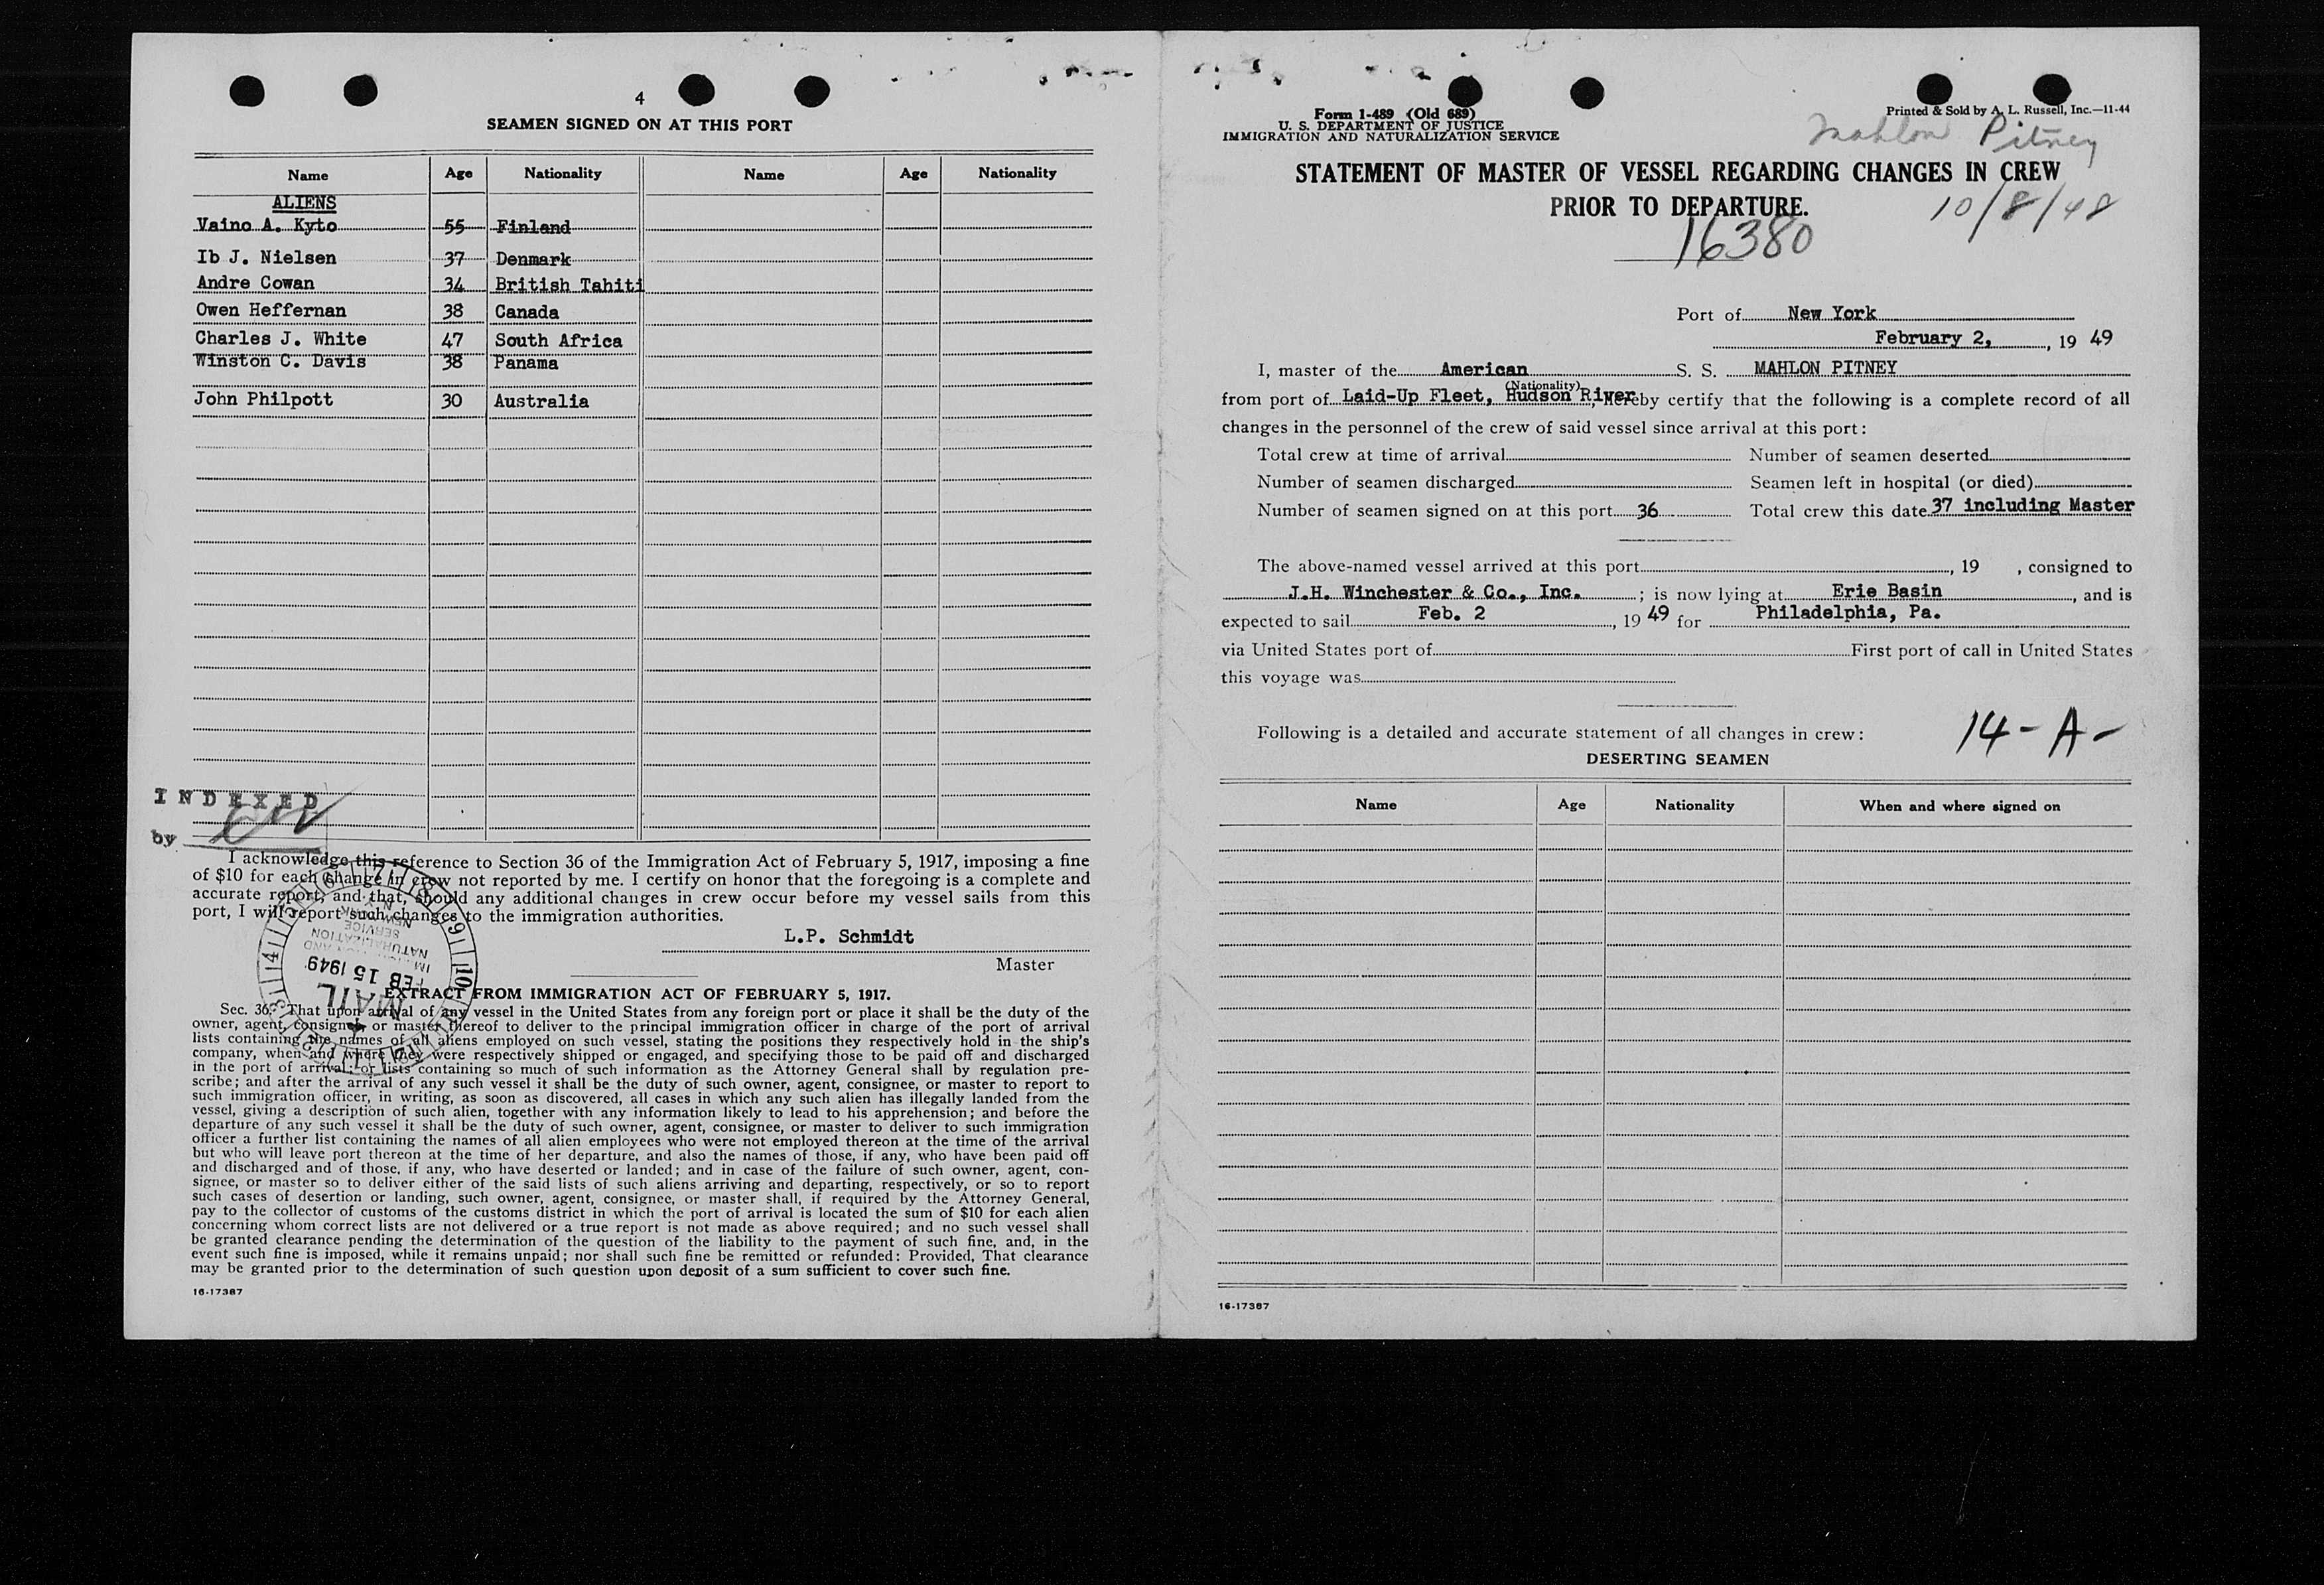 4
SEAMEN SIGNED ON AT THIS PORT
Name Age Nationality Name Age Nationality
ALIENS
Vaino A. Kyto 55 Finland
Ib J. Nielsen 37 Denmark
Andre Cowan 34 British Tahiti
Owen Heffernan 38 Canada
Charles J. White 47 South Africa
Winston C. Davis 38 Panama
John Philpott 30 Australia
INDEXED
by
I acknowledge this reference to Section 36 of the Immigration Act of February 5, 1917, imposing a fine
of $10 for each change in crew not reported by me. I certify on honor that the foregoing is a complete and
accurate report, and that, should any additional changes in crew occur before my vessel sails from this
port, I will report such changes to the immigration authorities.
L.P. Schmidt
Master
NEW YORK N.Y.
SERVICE
NATURALIZATION
FEB 15 1949
MAIL
EXTRACT FROM IMMIGRATION ACT OF FEBRUARY 5, 1917.
Sec. 36. That upon arrival of any vessel in the United States from any foreign port or place it shall be the duty of the
owner, agent, consignee, or master thereof to deliver to the principal immigration officer in charge of the port of arrival
lists containing the names of all aliens employed on such vessel, stating the positions they respectively hold in the ship's
company, when and where they were respectively shipped or engaged, and specifying those to be paid off and discharged
in the port of arrival; or lists containing so much of such information as the Attorney General shall by regulation pre-
scribe; and after the arrival of any such vessel it shall be the duty of such owner, agent, consignee, or master to report to
such immigration officer, in writing, as soon as discovered, all cases in which any such alien has illegally landed from the
vessel, giving a description of such alien, together with any information likely to lead to his apprehension; and before the
departure of any such vessel it shall be the duty of such owner, agent, consignee, or master to deliver to such immigration
officer a further list containing the names of all alien employees who were not employed thereon at the time of the arrival
but who will leave port thereon at the time of her departure, and also the names of those, if any, who have been paid off
and discharged and of those, if any, who have deserted or landed; and in case of the failure of such owner, agent, con-
signee, or master so to deliver either of the said lists of such aliens arriving and departing, respectively, or so to report
such cases of desertion or landing, such owner, agent, consignee, or master shall, if required by the Attorney General,
pay to the collector of customs of the customs district in which the port of arrival is located the sum of $10 for each alien
concerning whom correct lists are not delivered or a true report is not made as above required; and no such vessel shall
be granted clearance pending the determination of the question of the liability to the payment of such fine, and, in the
event such fine is imposed, while it remains unpaid; nor shall such fine be remitted or refunded: Provided, That clearance
may be granted prior to the determination of such question upon deposit of a sum sufficient to cover such fine.
16-17387
Form 1-489 (Old 689)
U. S. DEPARTMENT OF JUSTICE
IMMIGRATION AND NATURALIZATION SERVICE
Printed & Sold by A. L. Russell, Inc.—11-44
Mahlon Pitney
STATEMENT OF MASTER OF VESSEL REGARDING CHANGES IN CREW
PRIOR TO DEPARTURE.
10/8/48
16380
Port of New York
February 2, , 19 49
I, master of the American S. S. MAHLON PITNEY
(Nationality)
from port of Laid-Up Fleet, Hudson River, hereby certify that the following is a complete record of all
changes in the personnel of the crew of said vessel since arrival at this port:
Total crew at time of arrival Number of seamen deserted
Number of seamen discharged Seamen left in hospital (or died)
Number of seamen signed on at this port 36 Total crew this date 37 including Master
The above-named vessel arrived at this port , 19 , consigned to
J.H. Winchester & Co., Inc. ; is now lying at Erie Basin , and is
expected to sail Feb. 2 , 19 49 for Philadelphia, Pa.
via United States port of First port of call in United States
this voyage was
Following is a detailed and accurate statement of all changes in crew:
14-A-
DESERTING SEAMEN
Name Age Nationality When and where signed on
16-17387